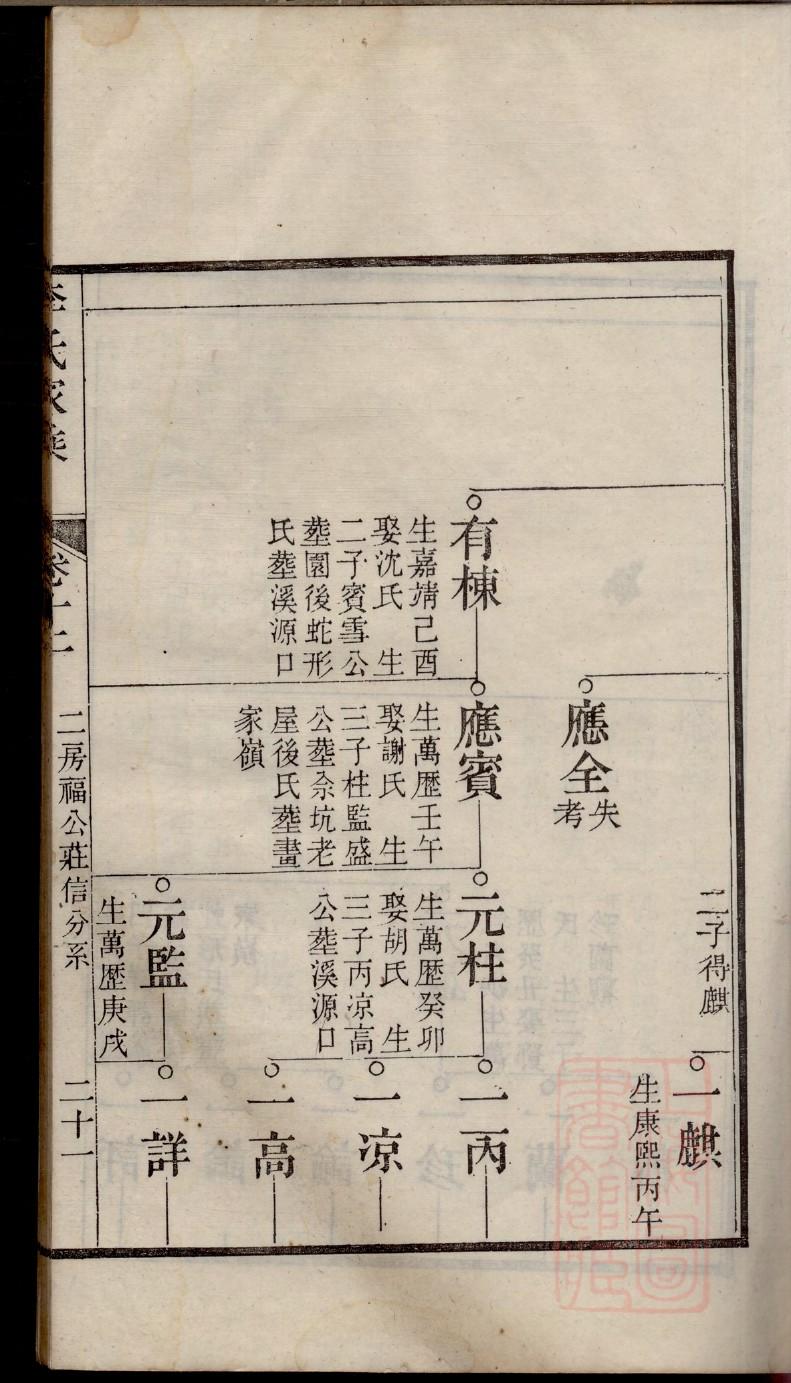 二子得麒
一麒
生康熙丙午
應全
失
考
有棟
生嘉靖己酉
娶沈氏 生
二子賓雪公
塟園後蛇形
氏塟溪源口
應賓
生萬歷壬午
娶謝氏 生
三子柱監盛
公塟余坑老
屋後氏塟畫
家嶺
元柱
生萬歷癸卯
娶胡氏 生
三子丙凉高
公塟溪源口
一丙
一凉
一高
元監
生萬歷庚戌
一詳
李氏家乗
卷十二
二房福公莊信分系
二十一